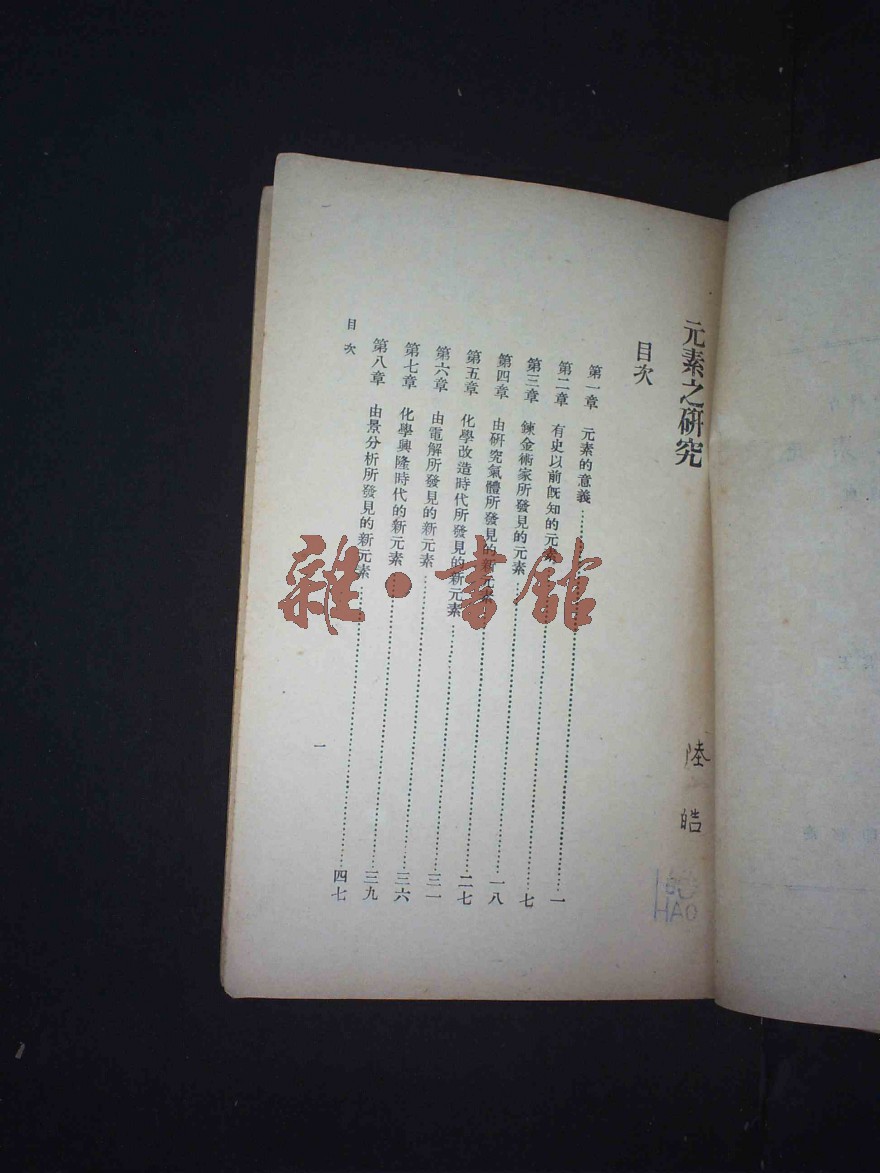 元素之研究
陸皓
HAO
目次
第一章 元素的意義……一
第二章 有史以前既知的元素……七
第三章 鍊金術家所發見的元素……一八
第四章 由研究氣體所發見的新元素……二七
第五章 化學改造時代所發見的新元素……三一
第六章 由電解所發見的新元素……三六
第七章 化學興隆時代的新元素……三九
第八章 由景分析所發見的新元素……四七
目次
一
雜·書館